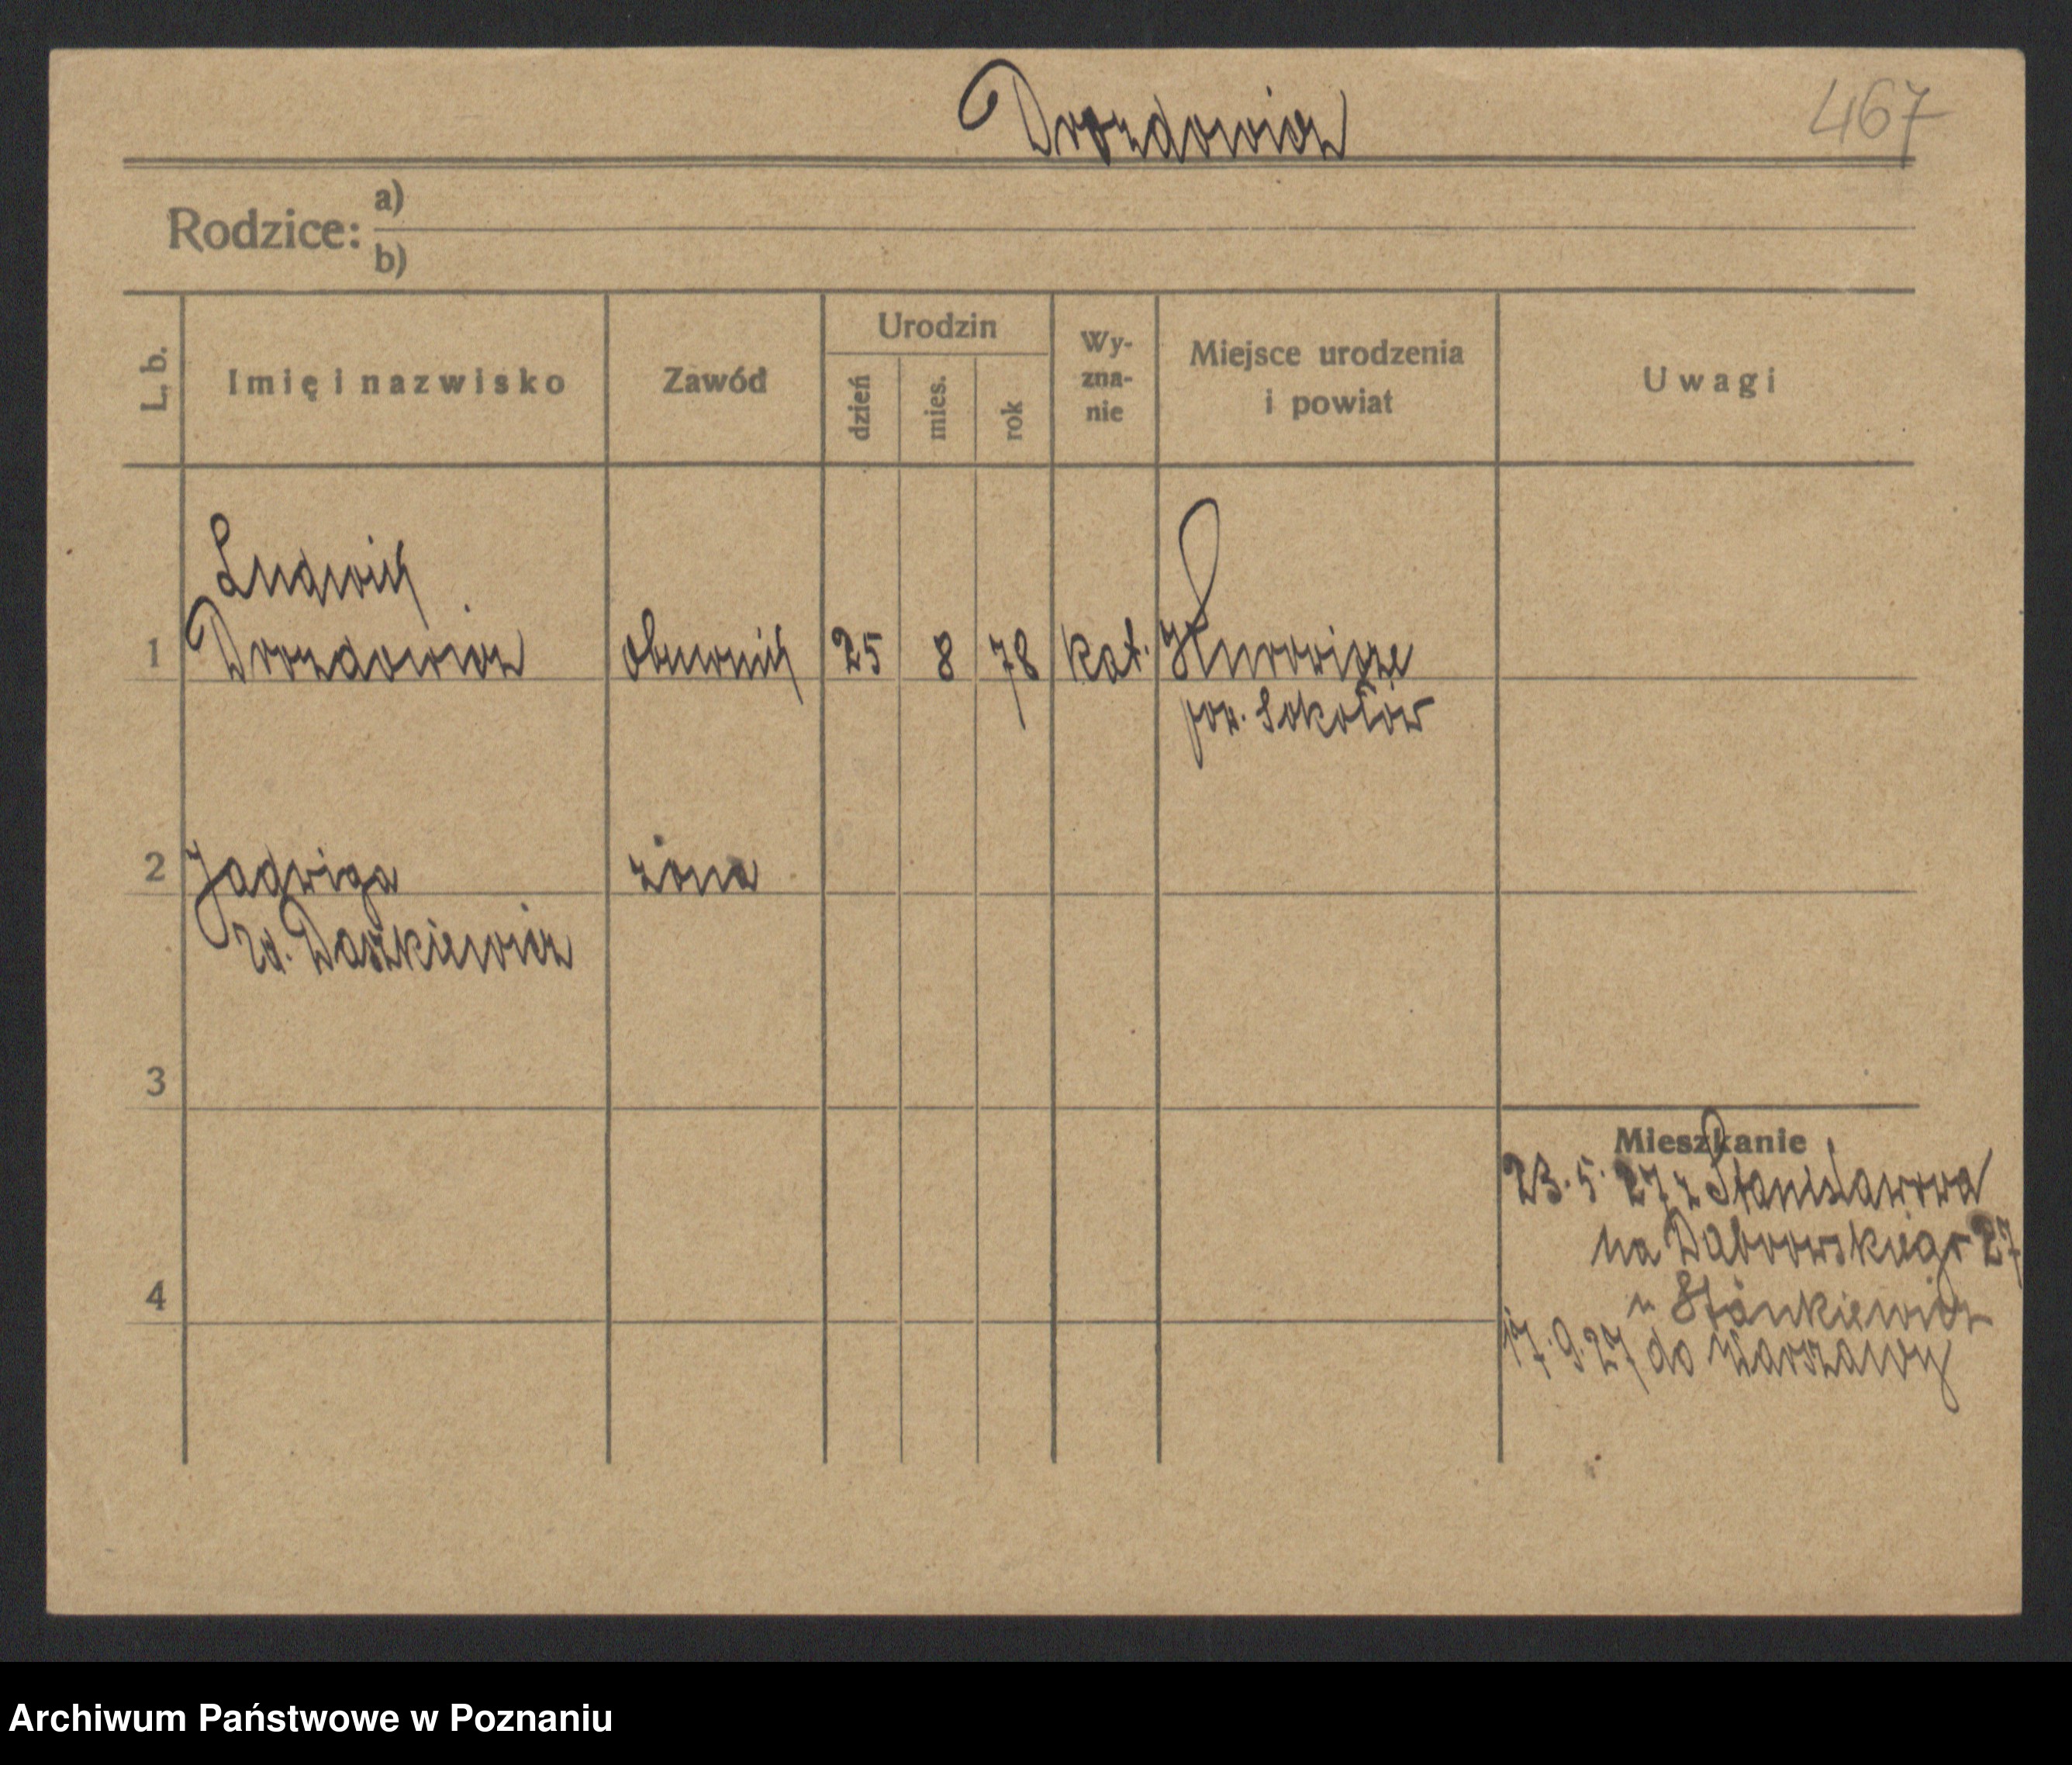 Drozdowicz
467
Rodzice: a)
b)
L. b.
Imię i nazwisko
Zawód
Urodzin
dzień
mies.
rok
Wy-
zna-
nie
Miejsce urodzenia
i powiat
Uwagi
Ludwik
1 Drozdowicz obuwnik 25 8 78 kat.
pow. Sokołów
2 Jadwiga żona
Daszkiewicz
3
Mieszkanie
23.5.27 z Stanisławowa
na Dąbrowskiego 27
4
u Stankiewicz
17.9.27 do Warszawy
Archiwum Państwowe w Poznaniu